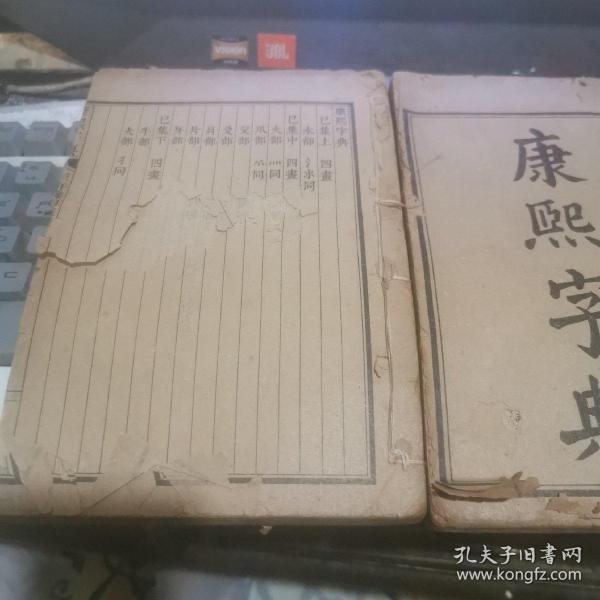 vision
JBL
康熙字典
巳集上 四畫
水部 氵氺同
巳集中 四畫
火部 灬同
爪部 爫同
父部
爻部
爿部
片部
牙部
巳集下 四畫
牛部
犬部 犭同
康熙字典
孔夫子旧书网
www.kongfz.com